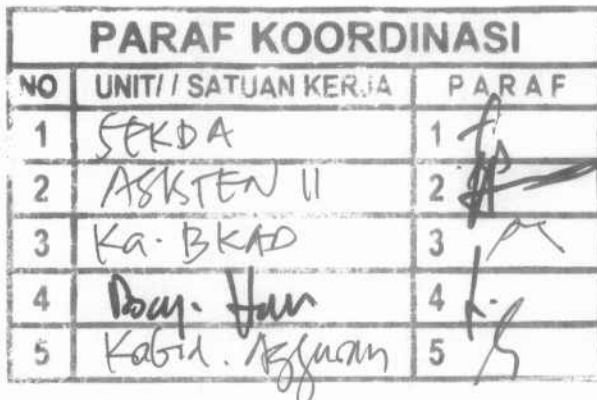 PARAF KOORDINASI
NO UNIT// SATUAN KERJA PARAF
1 SEKDA 1
2 ASISTEN II 2
3 Ka. BKAD 3
4 4
5 Kabid. 5